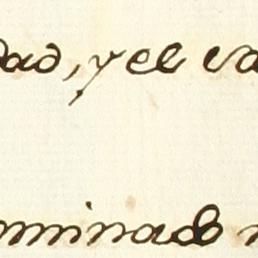 dad, y el ca
ominado